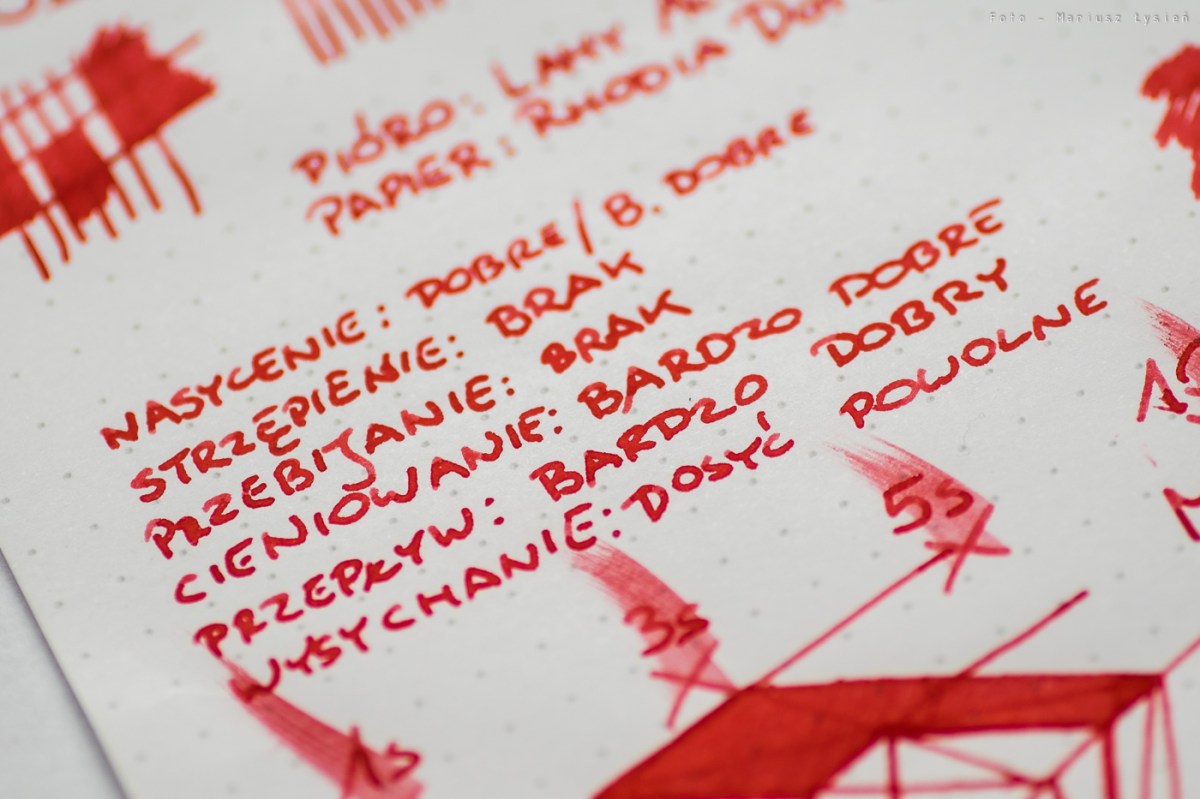 Foto - Mariusz Łysień
PIÓRO: LAMY
PAPIER: RHODIA
NASYCENIE: DOBRE/B. DOBRE
STRZĘPIENIE: BRAK
PRZEBIJANIE: BRAK
CIENIOWANIE: BARDZO DOBRE
PRZEPŁYW: BARDZO DOBRY
WYSYCHANIE: DOSYĆ POWOLNE
1s
3s
5s